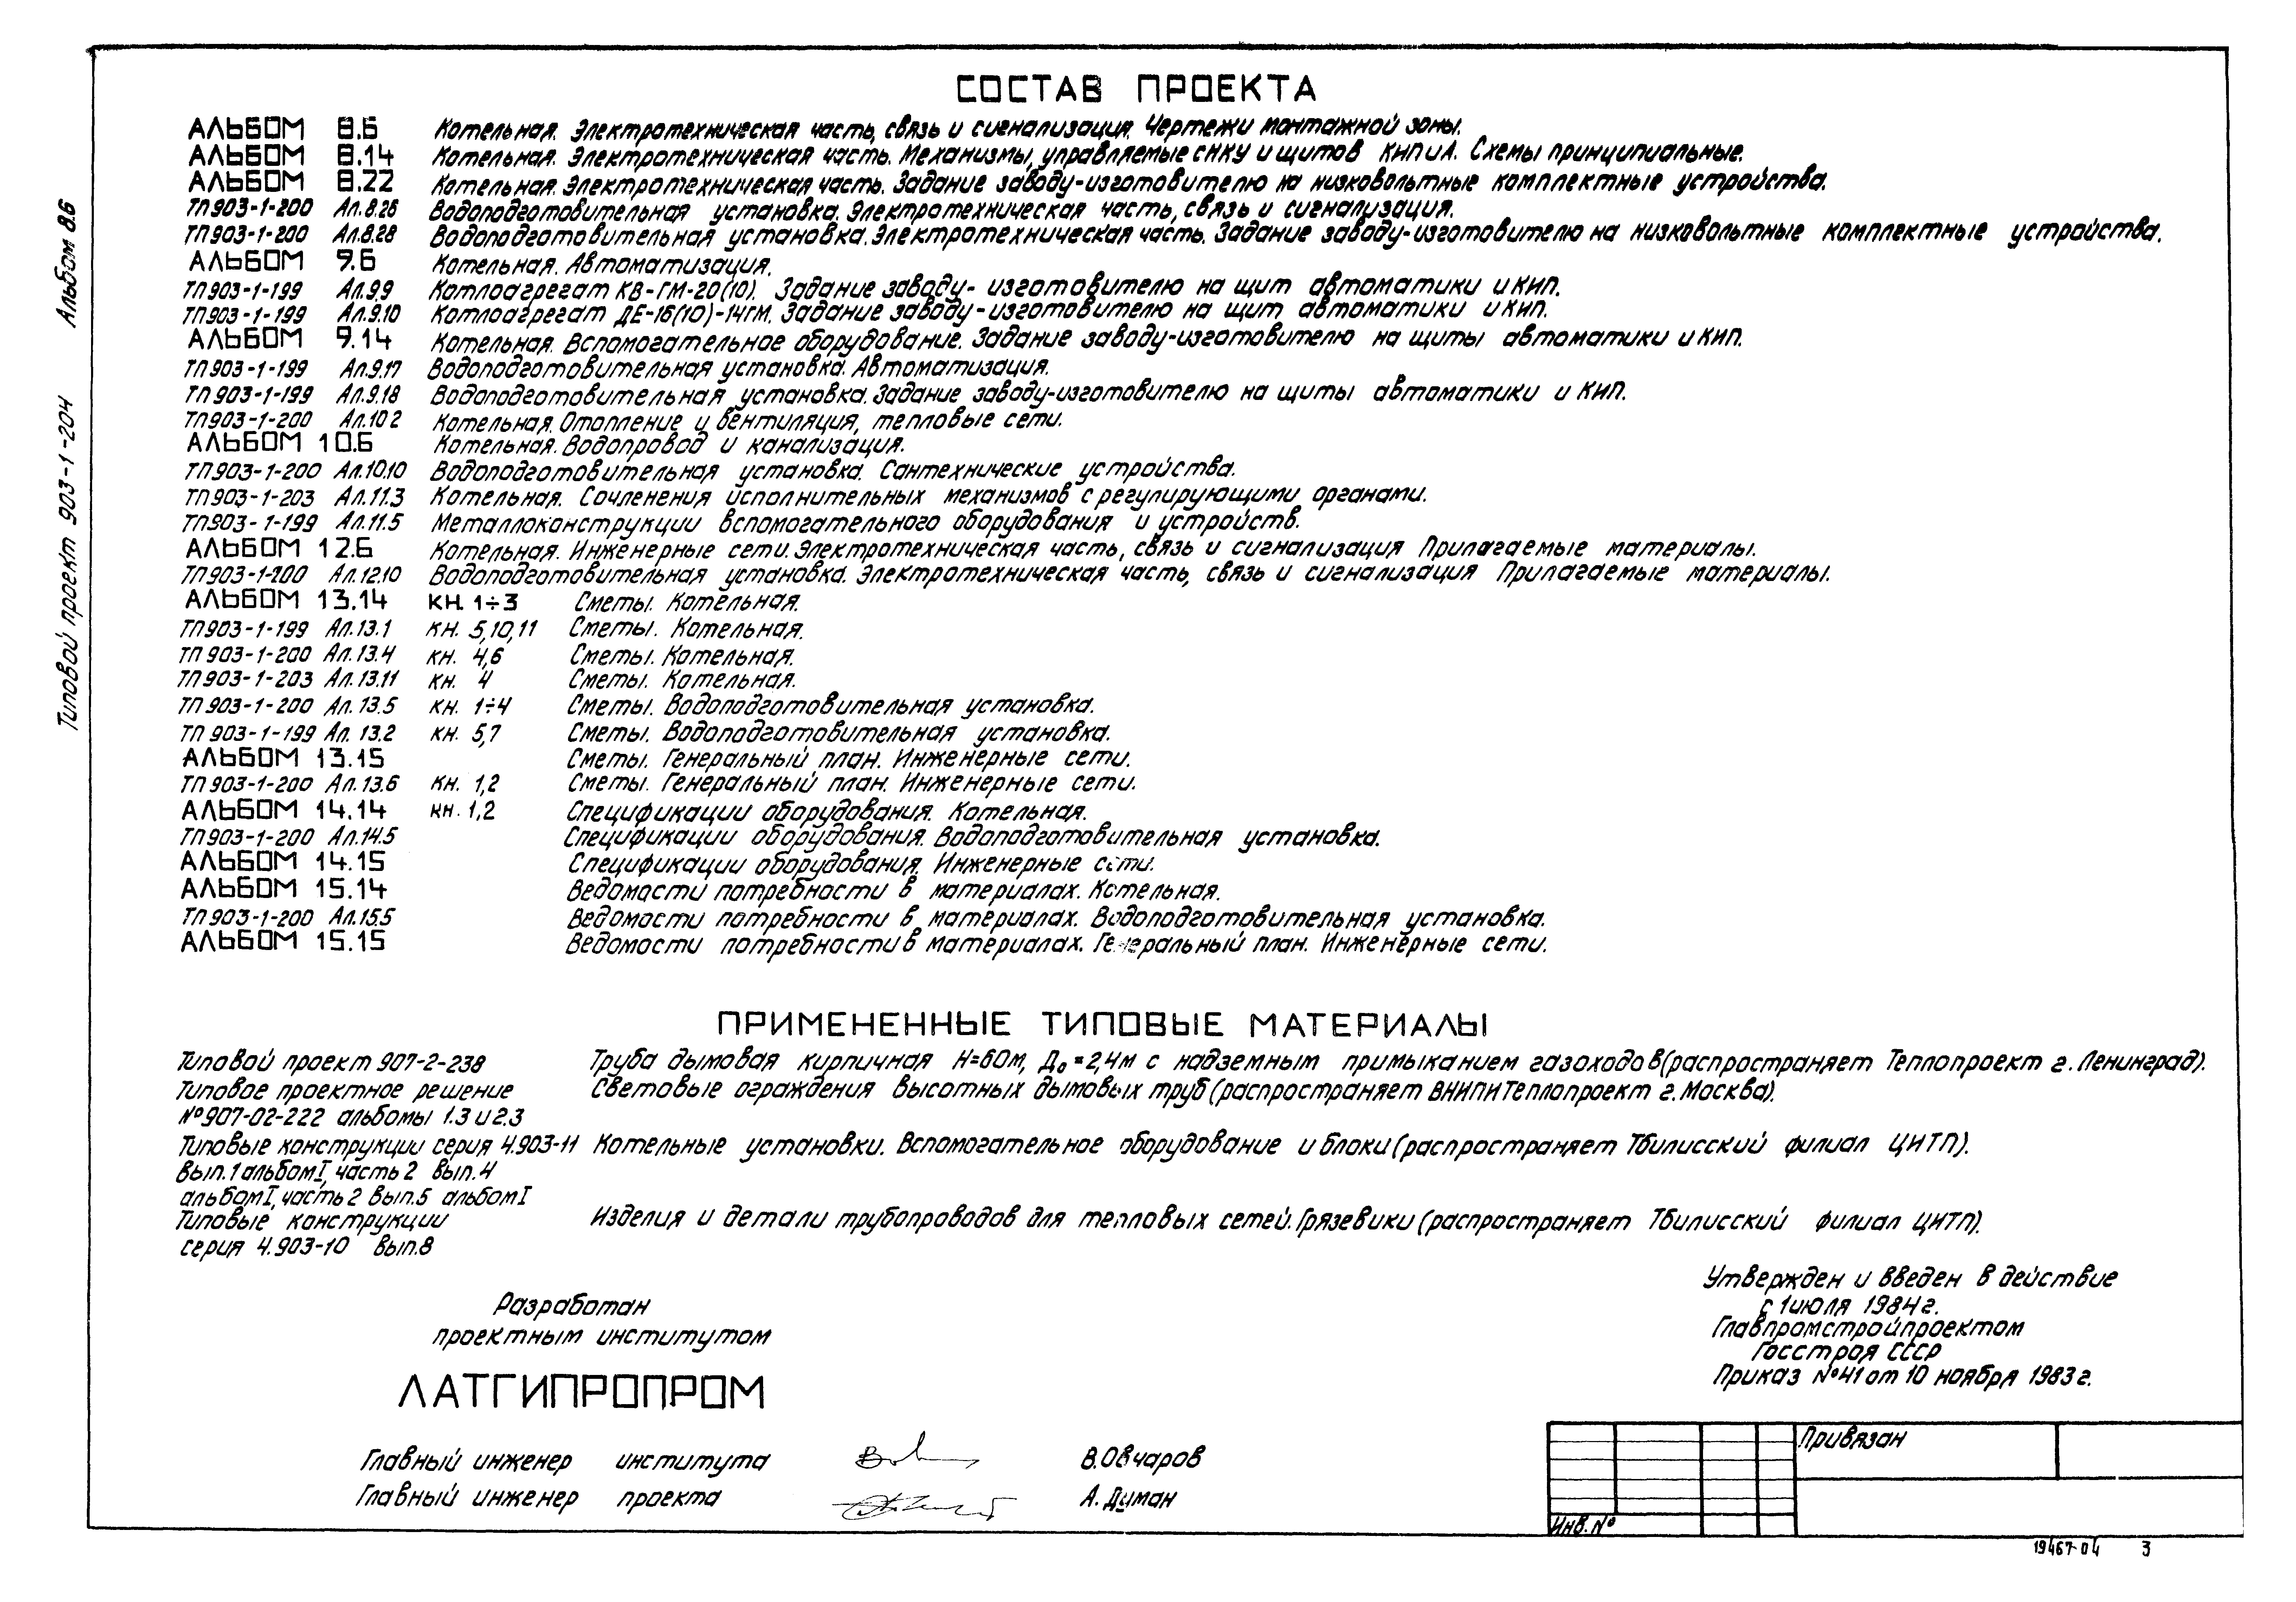 СОСТАВ ПРОЕКТА
АЛЬБОМ 8.6 Котельная. Электротехническая часть, связь и сигнализация. Чертежи монтажной зоны.
АЛЬБОМ 8.14 Котельная. Электротехническая часть. Механизмы, управляемые с НКУ и щитов КИП и А. Схемы принципиальные.
АЛЬБОМ 8.22 Котельная. Электротехническая часть. Задание заводу-изготовителю на низковольтные комплектные устройства.
ТП903-1-200 Ал.8.26 Водоподготовительная установка. Электротехническая часть, связь и сигнализация.
ТП903-1-200 Ал.8.28 Водоподготовительная установка. Электротехническая часть. Задание заводу-изготовителю на низковольтные комплектные устройства.
АЛЬБОМ 9.6 Котельная. Автоматизация.
ТП903-1-199 Ал.9.9 Котлоагрегат КВ-ГМ-20(10). Задание заводу-изготовителю на щит автоматики и КИП.
ТП903-1-199 Ал.9.10 Котлоагрегат ДЕ-16(10)-14ГМ. Задание заводу-изготовителю на щит автоматики и КИП.
АЛЬБОМ 9.14 Котельная. Вспомогательное оборудование. Задание заводу-изготовителю на щиты автоматики и КИП.
ТП903-1-199 Ал.9.17 Водоподготовительная установка. Автоматизация.
ТП903-1-199 Ал.9.18 Водоподготовительная установка. Задание заводу-изготовителю на щиты автоматики и КИП.
ТП903-1-200 Ал.10.2 Котельная. Отопление и вентиляция, тепловые сети.
АЛЬБОМ 10.6 Котельная. Водопровод и канализация.
ТП903-1-200 Ал.10.10 Водоподготовительная установка. Сантехнические устройства.
ТП903-1-203 Ал.11.3 Котельная. Сочленения исполнительных механизмов с регулирующими органами.
ТП903-1-199 Ал.11.5 Металлоконструкции вспомогательного оборудования и устройств.
АЛЬБОМ 12.6 Котельная. Инженерные сети. Электротехническая часть, связь и сигнализация Прилагаемые материалы.
ТП903-1-200 Ал.12.10 Водоподготовительная установка. Электротехническая часть, связь и сигнализация Прилагаемые материалы.
АЛЬБОМ 13.14 КН. 1÷3 Сметы. Котельная.
ТП903-1-199 Ал.13.1 КН. 5,10,11 Сметы. Котельная.
ТП903-1-200 Ал.13.4 КН. 4,6 Сметы. Котельная.
ТП903-1-203 Ал.13.11 КН. 4 Сметы. Котельная.
ТП903-1-200 Ал.13.5 КН. 1÷4 Сметы. Водоподготовительная установка.
ТП903-1-199 Ал.13.2 КН. 5,7 Сметы. Водоподготовительная установка.
АЛЬБОМ 13.15 Сметы. Генеральный план. Инженерные сети.
ТП903-1-200 Ал.13.6 КН. 1,2 Сметы. Генеральный план. Инженерные сети.
АЛЬБОМ 14.14 КН. 1,2 Спецификации оборудования. Котельная.
ТП903-1-200 Ал.14.5 Спецификации оборудования. Водоподготовительная установка.
АЛЬБОМ 14.15 Спецификации оборудования. Инженерные сети.
АЛЬБОМ 15.14 Ведомости потребности в материалах. Котельная.
ТП903-1-200 Ал.15.5 Ведомости потребности в материалах. Водоподготовительная установка.
АЛЬБОМ 15.15 Ведомости потребности в материалах. Генеральный план. Инженерные сети.
ПРИМЕНЕННЫЕ ТИПОВЫЕ МАТЕРИАЛЫ
Типовой проект 907-2-238 Труба дымовая кирпичная Н=60м, До=2,4м с надземным примыканием газоходов (распространяет Теплопроект г. Ленинград).
Типовое проектное решение Световые ограждения высотных дымовых труб (распространяет ВНИПИТеплопроект г. Москва).
№907-02-222 альбомы 1.3 и 2.3
Типовые конструкции серия 4.903-11 Котельные установки. Вспомогательное оборудование и блоки (распространяет Тбилисский филиал ЦИТП).
Вып.1 альбом I, часть 2 вып.4
альбом I, часть 2 Вып.5 альбом I
Типовые конструкции Изделия и детали трубопроводов для тепловых сетей. Грязевики (распространяет Тбилисский филиал ЦИТП).
серия 4.903-10 вып.8
Утвержден и введен в действие
с 1 июля 1984г.
Главпромстройпроектом
Госстроя СССР
Приказ №41 от 10 ноября 1983г.
Разработан
проектным институтом
ЛАТГИПРОПРОМ
Главный инженер института В. Овчаров
Главный инженер проекта А. Думан
Привязан
Инв. №
19467-04 3
Типовой проект 903-1-204 Альбом 8.6